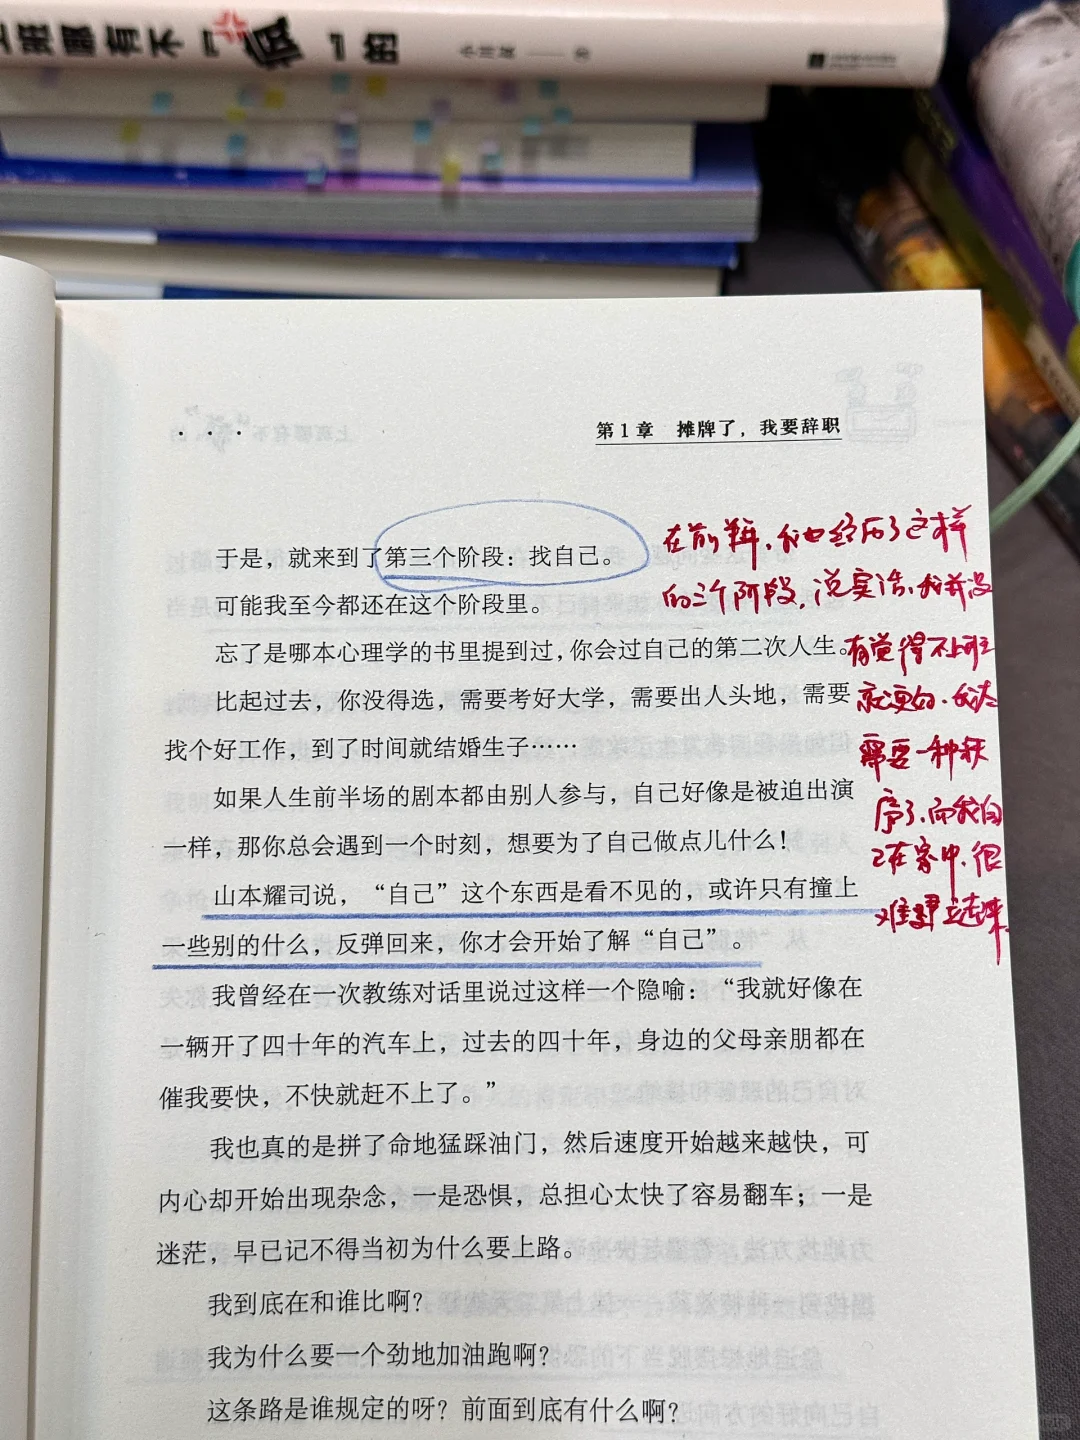 上班哪有不「疯」的
· · ·
第1章 摊牌了，我要辞职
于是，就来到了第三个阶段：找自己。
可能我至今都还在这个阶段里。
忘了是哪本心理学的书里提到过，你会过自己的第二次人生。
比起过去，你没得选，需要考好大学，需要出人头地，需要
找个好工作，到了时间就结婚生子……
如果人生前半场的剧本都由别人参与，自己好像是被迫出演
一样，那你总会遇到一个时刻，想要为了自己做点儿什么！
山本耀司说，“自己”这个东西是看不见的，或许只有撞上
一些别的什么，反弹回来，你才会开始了解“自己”。
我曾经在一次教练对话里说过这样一个隐喻：“我就好像在
一辆开了四十年的汽车上，过去的四十年，身边的父母亲朋都在
催我要快，不快就赶不上了。”
我也真的是拼了命地猛踩油门，然后速度开始越来越快，可
内心却开始出现杂念，一是恐惧，总担心太快了容易翻车；一是
迷茫，早已记不得当初为什么要上路。
我到底在和谁比啊？
我为什么要一个劲地加油跑啊？
这条路是谁规定的呀？前面到底有什么啊？
在前 我也经历了这样
的三个阶段，说实话，我并没
有觉得不上班
就
需要一种秩
序了，而我自
己在家中，很
难 立起来